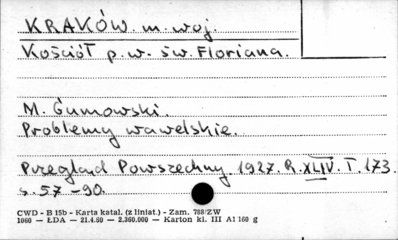 KRAKÓW. m. woj.
Kościół p.w. św. Floriana.
M. Gumowski.
Problemy wawelskie.
Przegląd Powszechny. 1927. R. XLIV. T. 173.
s. 57-90.
CWD - B 15b - Karta katal. (z liniat.) - Zam. 788/ZW
1060 — ŁDA — 21.4.60 — 2.360.000 — Karton kl. III A1 160 g